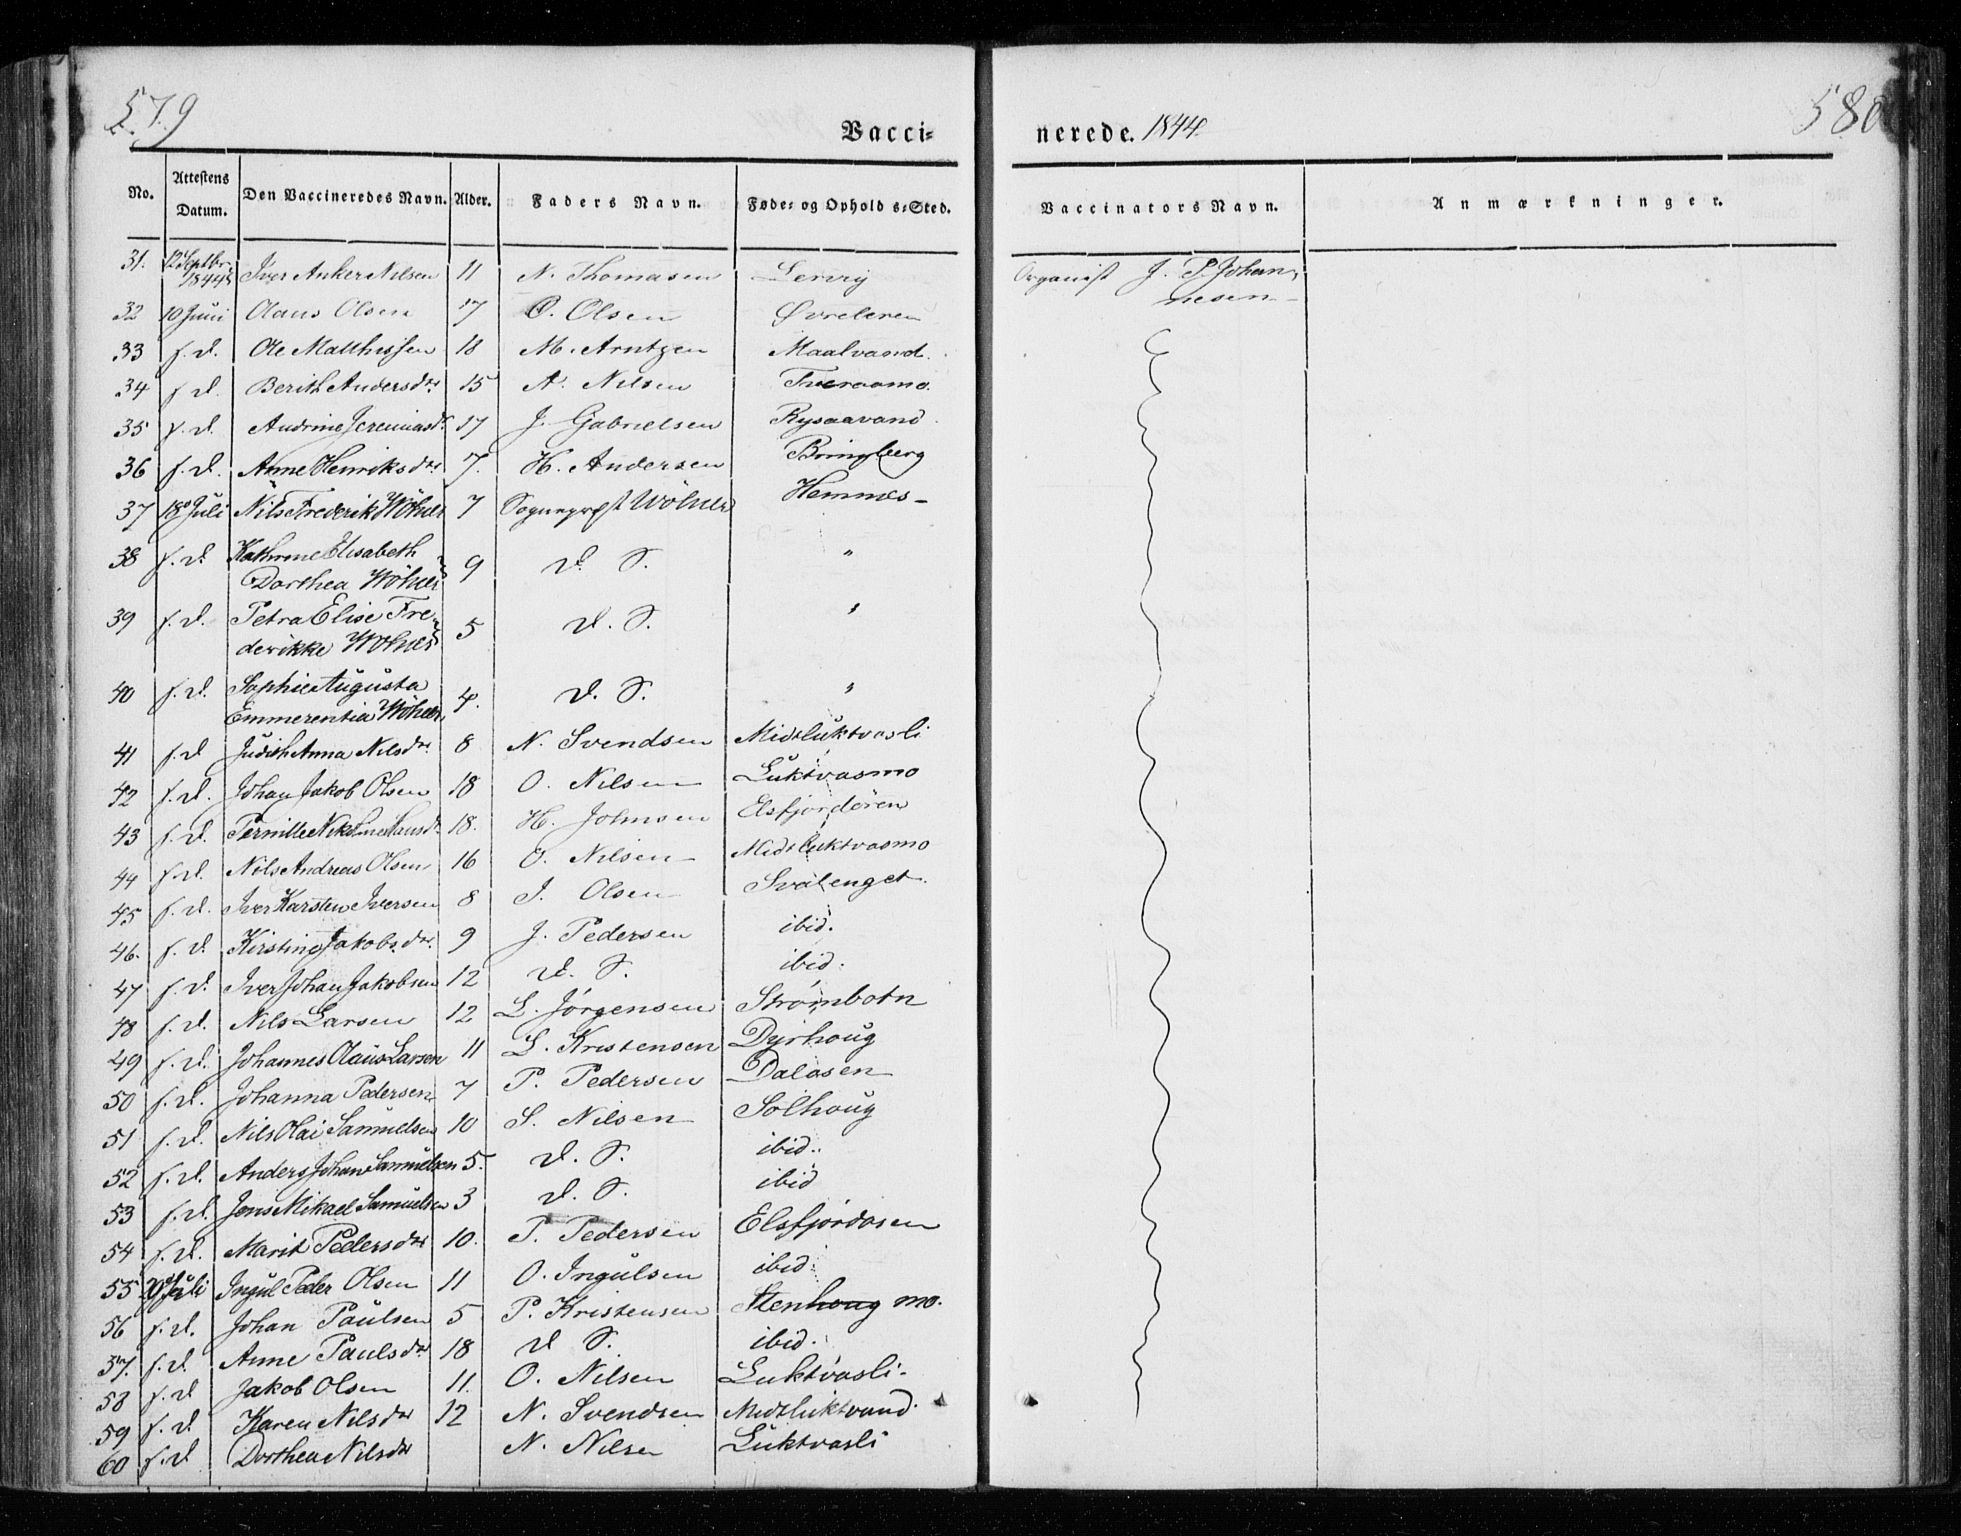 579
580
Vacci-
nerede. 1844.
No. Attestens Datum. Den Vaccineredes Navn. Alder. Faders Navn. Føde- og Opholds-Sted. Vaccinators Navn. Anmærkninger.
31. 12 Septbr. 1844 Iver Anker Nilsen 11 N. Thomasen Lervig Organist J. P. Johannesen
32 10 Juni Olaus Olsen 17 O. Olsen Øvreleren
33 f. d. Ole Mathissen 18 M. Arntzen Maalvand.
34 f. d. Berith Andersdtr 15 A. Nilsen Tveraamo.
35 f. d. Andrine Jeremiasdr. 17 J. Gabrielsen Rysaavand.
36 f. d. Anne Henriksdtr 7. H. Andersen Bringberg
37 18 Juli Nils Frederik Wöhler 7 Sognepræst Wöhler Hemnes-
38 f. d. Kathrine Elisabeth
Dorthea Wöhler 9 d. S. "
39 f. d. Petra Elise Fre-
derikke Wöhler 5 d. S. "
40 f. d. Sophie Augusta
Emmerentia Wöhler 4. d. S. "
41 f. d Judith Anna Nilsdtr 8 N. Svendsen Midtluktvasli
42 f. d. Johan Jakob Olsen 18 O. Nilsen Luktvasmo
43 f. d. Pernille Nikoline Hansdr. 18. H. Johnsen Elsfjordøren
44 f. d. Nils Andreas Olsen 16 O. Nilsen Midtluktvasmo
45 f. d. Iver Karsten Iversen 8 I. Olsen Svalenget.
46. f. d. Kirstine Jakobsdtr. 9 J. Pedersen ibid.
47 f. d. Iver Johan Jakobsen 12 d. S. ibid.
48 f. d. Nils Larsen 12 L. Jörgensen Strømbotn
49 f. d. Johannes Olaus Larsen 11 L. Kristensen Dyrhoug
50 f. d. Johanna Pedersen 7 P. Pedersen Dalosen
51 f. d. Nils Olai Samuelsen 10 S. Nilsen Solhoug
52 f. d. Anders Johan Samuelsen 5. d. S. ibid.
53 f. d. Jens Mikael Samuelsen 3 d. S. ibid
54 f. d. Marit Pedersdtr 10. P. Pedersen Elsfjordosen
55 Juli Ingul Peder Olsen 11 O. Ingulsen ibid.
56 f. d. Johan Paulsen 5 P. Kristensen Stenhoug mo.
57. f. d. Anne Paulsdtr 18 d S. ibid.
58 f. d Jakob Olsen 11. O. Nilsen Luktvasli-
59 f. d Karen Nilsdtr 12 N. Svendsen Midtluktvand.
60 f. d Dorthea Nilsdtr N. Nilsen Luktvasli